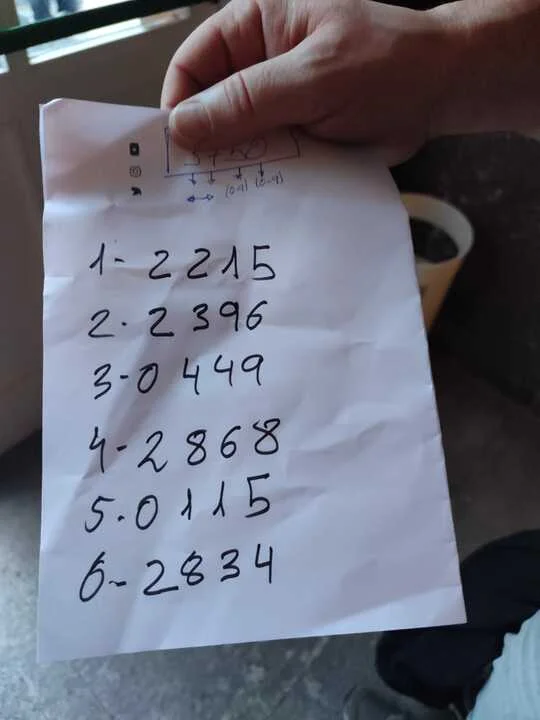 (0-9) (0-9)
1- 2215
2. 2396
3-0449
4-2868
5.0115
6-2834